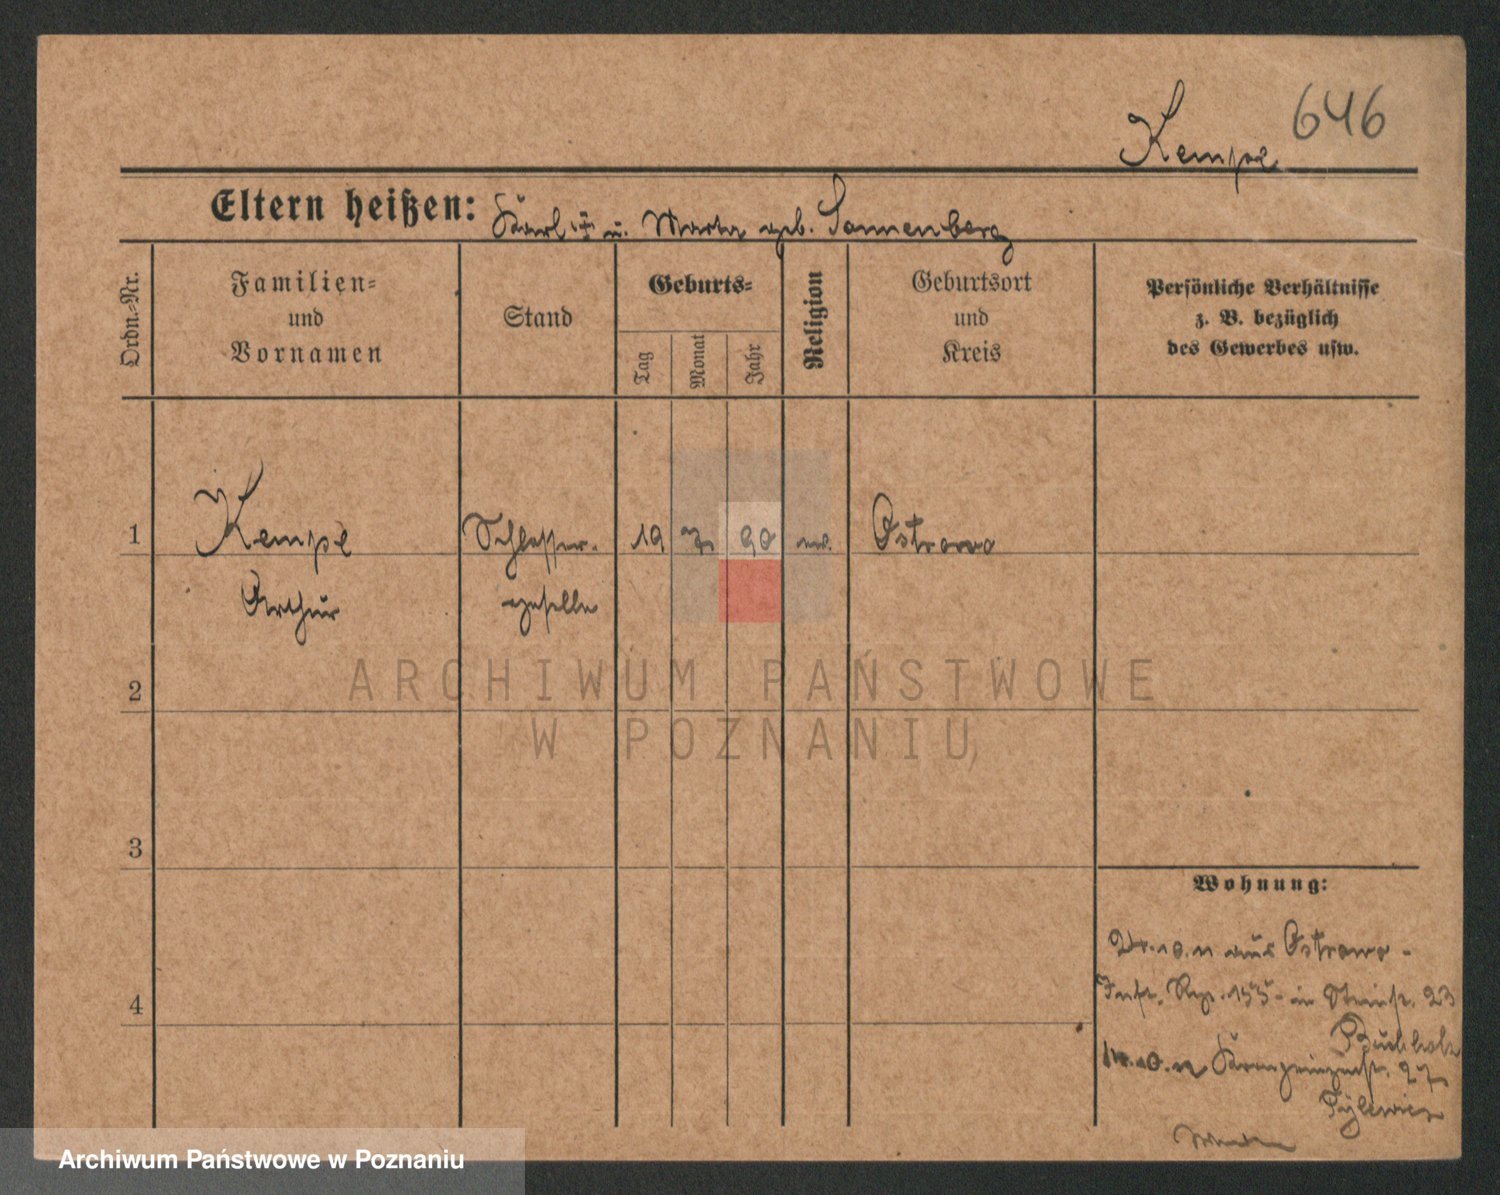 646
Kempe
Eltern heißen: Karl ‡ u. Marta geb. Sonnenberg
Ordn.-Nr.
Familien-
und
Vornamen
Stand
Geburts-
Tag
Monat
Jahr
Religion
Geburtsort
und
Kreis
Persönliche Verhältnisse
z. B. bezüglich
des Gewerbes usw.
1 Kempe Schlosser- 19 7 90 ev. Ostrowo
Arthur geselle
ARCHIWUM PAŃSTWOWE
W POZNANIU
2
3
4
Wohnung:
10.11 aus Ostrowo -
Inft. Rgt. 155 - in 23
Buchholz
Kronprinzenstr. 27
Archiwum Państwowe w Poznaniu